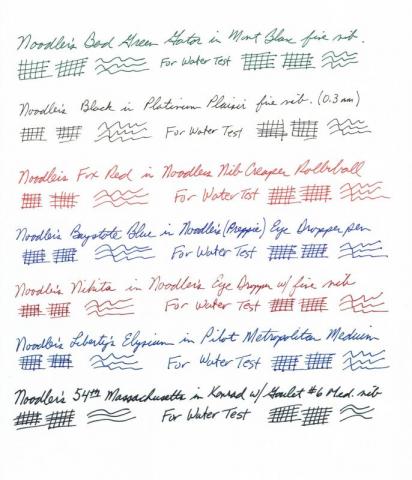 Noodler's Bad Green Gator in Mont Blanc fine nib.
For Water Test
Noodler's Black in Platinum Plaisir fine nib. (0.3 mm)
For Water Test
Noodler's Fox Red in Noodlers Nib Creaper Rollerball
For Water Test
Noodler's Baystate Blue in Noodler's (Preppie) Eye Dropper pen
For Water Test
Noodler's Nikita in Noodler's Eye Droppn w/ fine nib
For Water Test
Noodler's Liberty's Elysium in Pilot Metropolitan Medium
For Water Test
Noodler's 54th Massachusetts in Konrad w/ Goulet #6 Med. nib
For Water Test